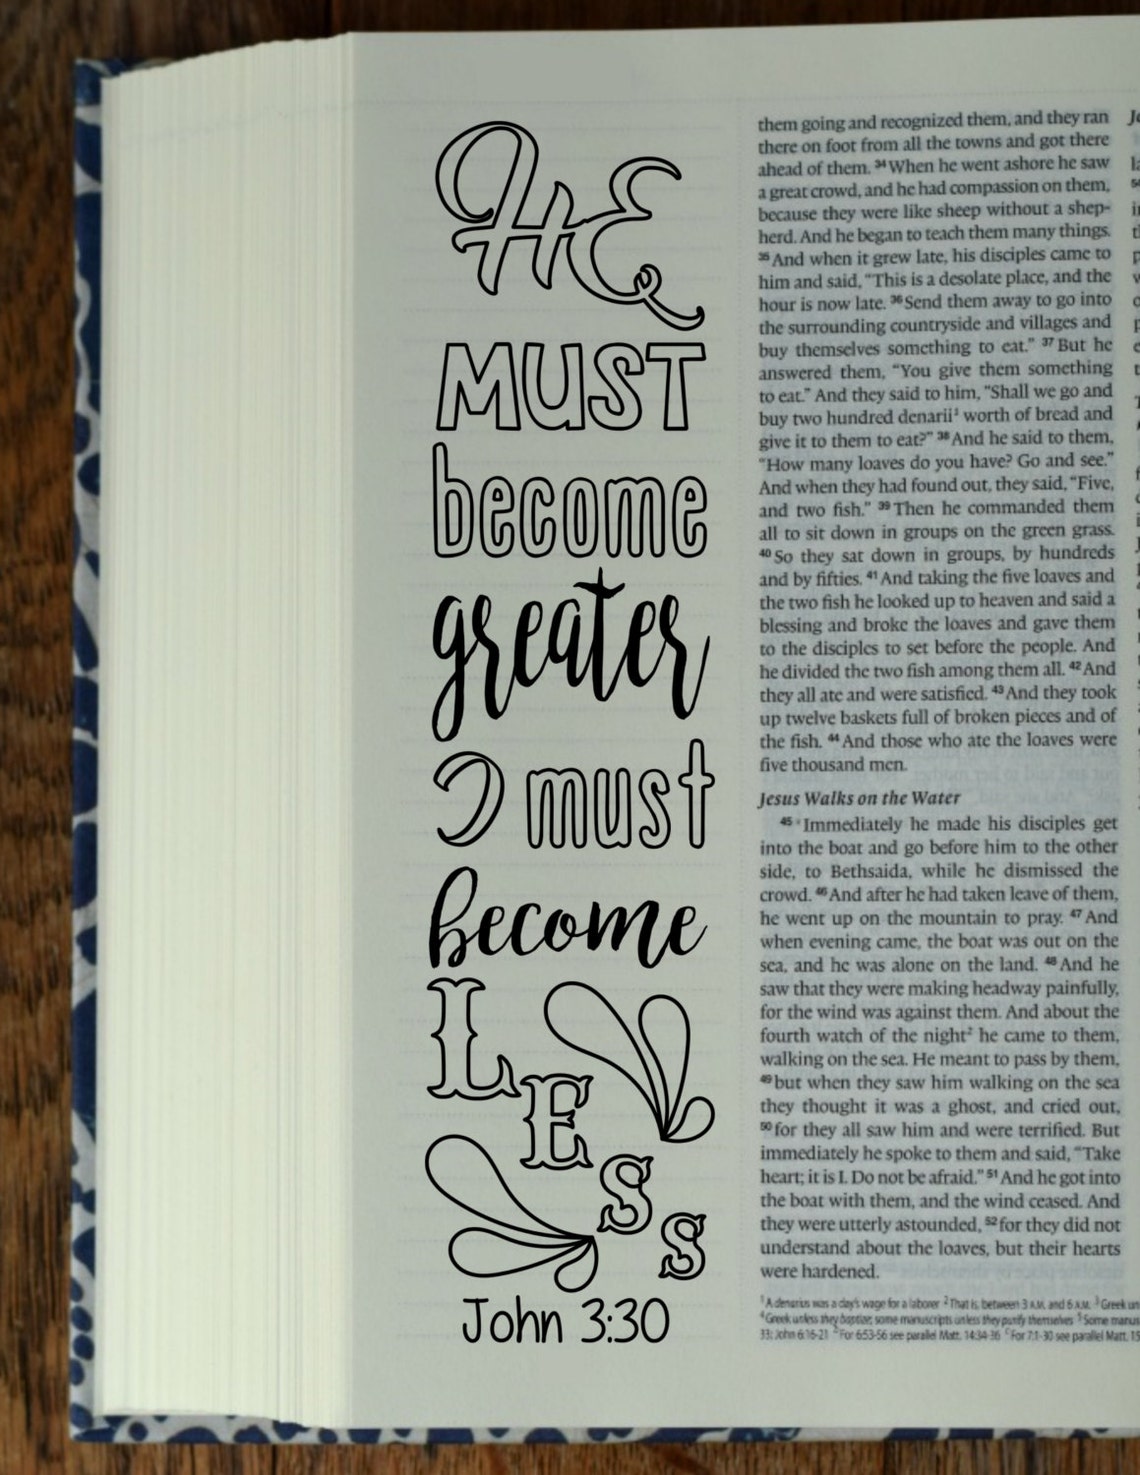 HE
MUST
become
greater
I must
become
LESS
John 3:30
them going and recognized them, and they ran
there on foot from all the towns and got there
ahead of them. 34 When he went ashore he saw
a great crowd, and he had compassion on them,
because they were like sheep without a shep-
herd. And he began to teach them many things.
35 And when it grew late, his disciples came to
him and said, “This is a desolate place, and the
hour is now late. 36 Send them away to go into
the surrounding countryside and villages and
buy themselves something to eat.” 37 But he
answered them, “You give them something
to eat.” And they said to him, “Shall we go and
buy two hundred denarii1 worth of bread and
give it to them to eat?” 38 And he said to them,
“How many loaves do you have? Go and see.”
And when they had found out, they said, “Five,
and two fish.” 39 Then he commanded them
all to sit down in groups on the green grass.
40 So they sat down in groups, by hundreds
and by fifties. 41 And taking the five loaves and
the two fish he looked up to heaven and said a
blessing and broke the loaves and gave them
to the disciples to set before the people. And
he divided the two fish among them all. 42 And
they all ate and were satisfied. 43 And they took
up twelve baskets full of broken pieces and of
the fish. 44 And those who ate the loaves were
five thousand men.
Jesus Walks on the Water
45 Immediately he made his disciples get
into the boat and go before him to the other
side, to Bethsaida, while he dismissed the
crowd. 46 And after he had taken leave of them,
he went up on the mountain to pray. 47 And
when evening came, the boat was out on the
sea, and he was alone on the land. 48 And he
saw that they were making headway painfully,
for the wind was against them. And about the
fourth watch of the night2 he came to them,
walking on the sea. He meant to pass by them,
49 but when they saw him walking on the sea
they thought it was a ghost, and cried out,
50 for they all saw him and were terrified. But
immediately he spoke to them and said, “Take
heart; it is I. Do not be afraid.” 51 And he got into
the boat with them, and the wind ceased. And
they were utterly astounded, 52 for they did not
understand about the loaves, but their hearts
were hardened.
1 A denarius was a day's wage for a laborer 2 That is, between 3 A.M. and 6 A.M. 3 Greek
4 Greek unless they baptize; some manuscripts unless they purify themselves 5 Some
33; John 6:16-21 For 6:53-56 see parallel Matt. 14:34-36 For 7:1-30 see parallel Matt. 15